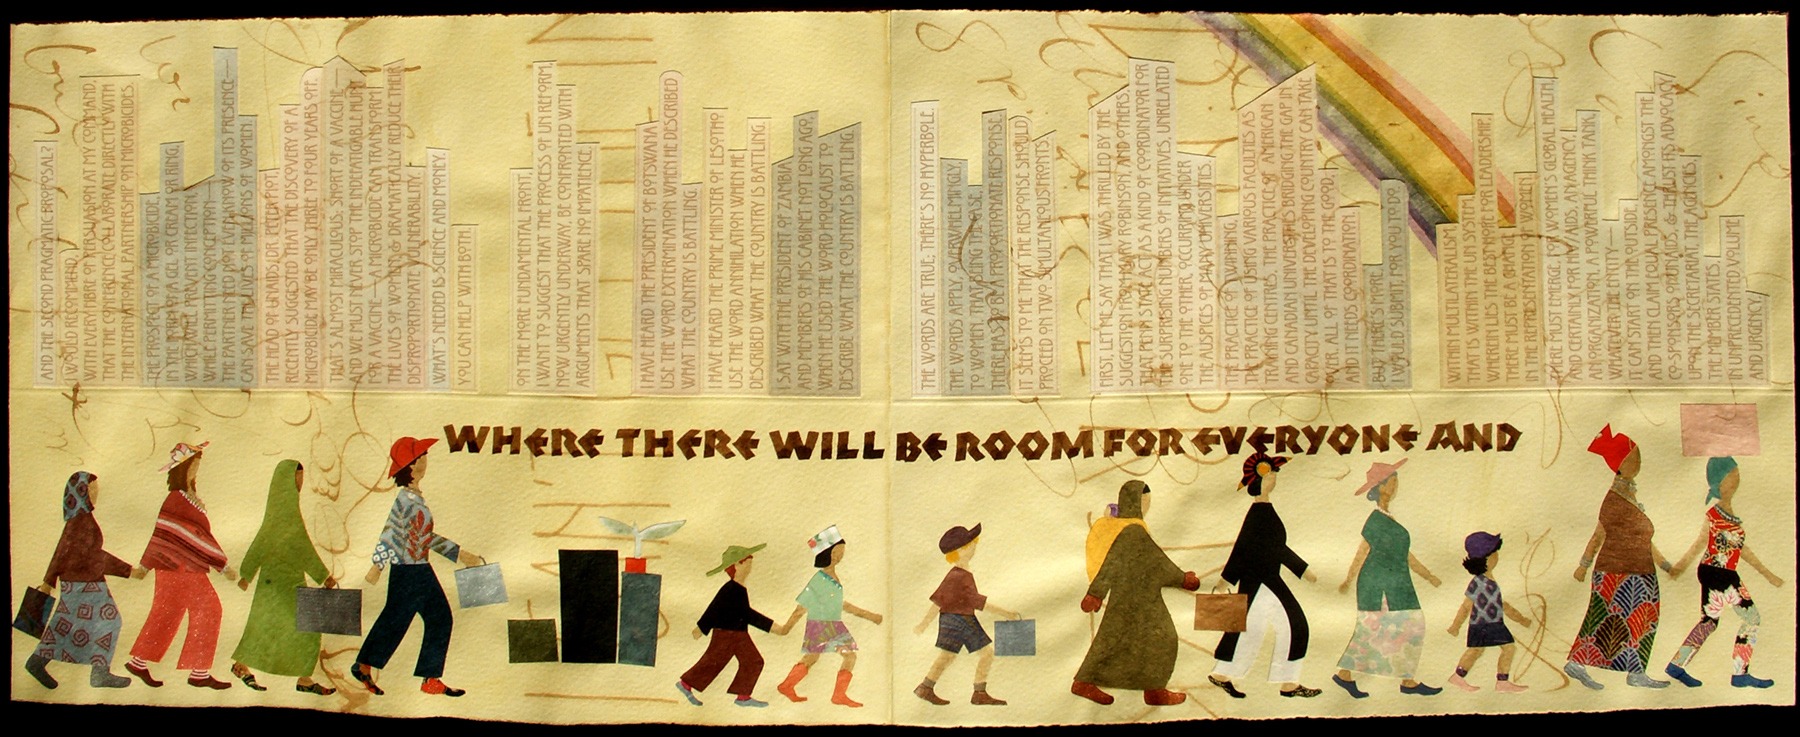 AND THE SECOND PRAGMATIC PROPOSAL?
I WOULD RECOMMEND,
WITH EVERY FIBRE OF PERSUASION AT MY COMMAND,
THAT THE CONFERENCE COLLABORATE DIRECTLY WITH
THE INTERNATIONAL PARTNERSHIP ON MICROBICIDES.
THE PROSPECT OF A MICROBICIDE,
IN THE FORM OF A GEL OR CREAM OR RING,
WHICH WILL PREVENT INFECTION,
WHILE PERMITTING CONCEPTION—
THE PARTNER NEED NOT EVEN KNOW OF ITS PRESENCE—
CAN SAVE THE LIVES OF MILLIONS OF WOMEN.
THE HEAD OF UNAIDS, DR. PETER PIOT,
RECENTLY SUGGESTED THAT THE DISCOVERY OF A
MICROBICIDE MAY BE ONLY THREE TO FOUR YEARS OFF.
THAT'S ALMOST MIRACULOUS: SHORT OF A VACCINE—
AND WE MUST NEVER STOP THE INDEFATIGABLE HUNT
FOR A VACCINE—A MICROBICIDE CAN TRANSFORM
THE LIVES OF WOMEN & DRAMATICALLY REDUCE THEIR
DISPROPORTIONATE VULNERABILITY.
WHAT'S NEEDED IS SCIENCE AND MONEY.
YOU CAN HELP WITH BOTH.
ON THE MORE FUNDAMENTAL FRONT,
I WANT TO SUGGEST THAT THE PROCESS OF UN REFORM,
NOW URGENTLY UNDERWAY, BE CONFRONTED WITH
ARGUMENTS THAT SPARE NO IMPATIENCE.
I HAVE HEARD THE PRESIDENT OF BOTSWANA
USE THE WORD EXTERMINATION WHEN HE DESCRIBED
WHAT THE COUNTRY IS BATTLING.
I HAVE HEARD THE PRIME MINISTER OF LESOTHO
USE THE WORD ANNIHILATION WHEN HE
DESCRIBED WHAT THE COUNTRY IS BATTLING.
I SAT WITH THE PRESIDENT OF ZAMBIA
AND MEMBERS OF HIS CABINET NOT LONG AGO,
WHEN HE USED THE WORD HOLOCAUST TO
DESCRIBE WHAT THE COUNTRY IS BATTLING.
THE WORDS ARE TRUE; THERE'S NO HYPERBOLE.
THE WORDS APPLY, OVERWHELMINGLY,
TO WOMEN. THAT BEING THE CASE,
THERE HAS TO BE A PROPORTIONATE RESPONSE.
IT SEEMS TO ME THAT THE RESPONSE SHOULD
PROCEED ON TWO SIMULTANEOUS FRONTS.
FIRST, LET ME SAY THAT I WAS THRILLED BY THE
SUGGESTION FROM MARY ROBINSON, AND OTHERS,
THAT PENN STATE ACT AS A KIND OF COORDINATOR FOR
THE SURPRISING NUMBERS OF INITIATIVES, UNRELATED
ONE TO THE OTHER, OCCURRING UNDER
THE AUSPICES OF MANY UNIVERSITIES.
THE PRACTICE OF TWINNING,
THE PRACTICE OF USING VARIOUS FACULTIES AS
TRAINING CENTRES, THE PRACTICE OF AMERICAN
AND CANADIAN UNIVERSITIES BRIDGING THE GAP IN
CAPACITY UNTIL THE DEVELOPING COUNTRY CAN TAKE
OVER, ALL OF THAT IS TO THE GOOD,
AND IT NEEDS COORDINATION.
BUT THERE'S MORE.
I WOULD SUBMIT, FOR YOU TO DO.
WITHIN MULTILATERALISM,
THAT IS WITHIN THE UN SYSTEM,
WHEREIN LIES THE BEST HOPE FOR LEADERSHIP,
THERE MUST BE A CHANGE
IN THE REPRESENTATION OF WOMEN.
THERE MUST EMERGE, FOR WOMEN'S GLOBAL HEALTH,
AND CERTAINLY FOR HIV/AIDS, AN AGENCY,
AN ORGANIZATION, A POWERFUL THINK TANK,
WHATEVER THE ENTITY—
IT CAN START ON THE OUTSIDE,
AND THEN CLAIM FOUL PRESENCE AMONGST THE
CO-SPONSORS OF UNAIDS, & THRUST ITS ADVOCACY
UPON THE SECRETARIAT, THE AGENCIES,
THE MEMBER STATES,
IN UNPRECEDENTED VOLUME
AND URGENCY.
WHERE THERE WILL BE ROOM FOR EVERYONE AND